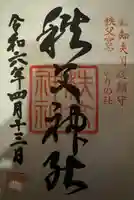 知知夫国総鎮守
秩父宮家ゆかりの社
秩父神社
令和六年四月十三日